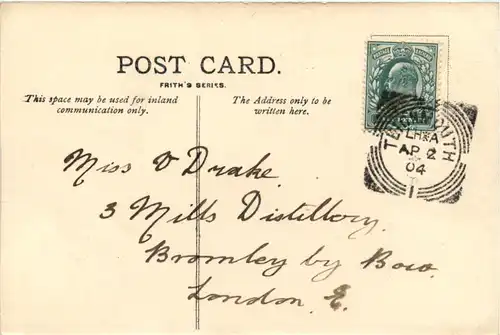 POST CARD.
FRITH'S SERIES.
This space may be used for inland
communication only.
The Address only to be
written here.
LH&A
AP 2
04
Miss D Drake.
3 Mills Distillery.
Bromley by Bow.
London. E.